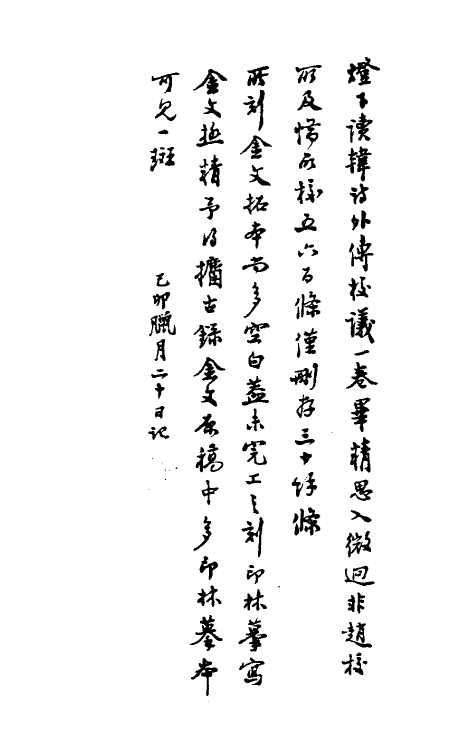 燈下讀韓詩外傳校議一卷畢精思入微迥非趙校
所及惜所校五六百條僅刪存三十餘條
所刻金文拓本尚多空白蓋未完工之刻印林摹寫
金文極精予得攈古錄金文原稿中多印林摹本
可見一斑
己卯臘月二十日記